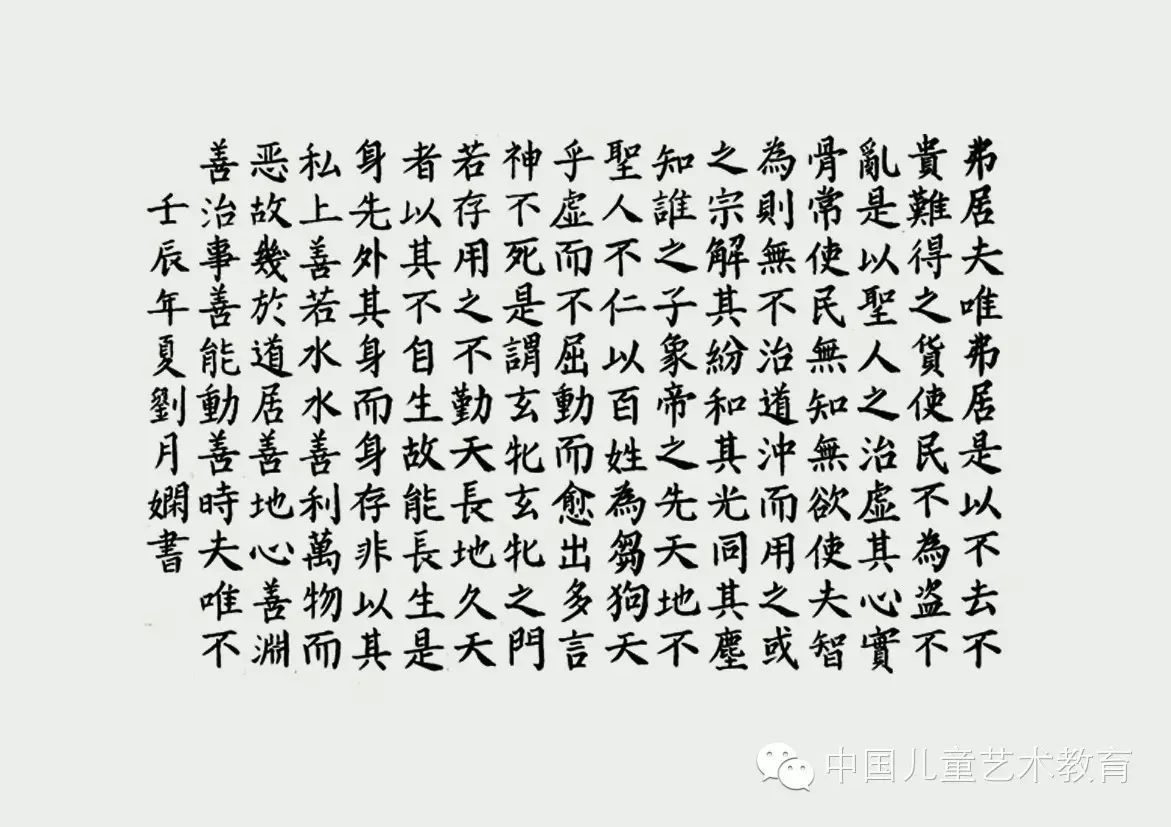 弗居夫唯弗居是以不去不
貴難得之貨使民不為盗不
亂是以聖人之治虛其心實
骨常使民無知無欲使夫智
為則無不治道沖而用之或
之宗解其紛和其光同其塵
知誰之子象帝之先天地不
聖人不仁以百姓為芻狗天
乎虛而不屈動而愈出多言
神不死是謂玄牝玄牝之門
若存用之不勤天長地久天
者以其不自生故能長生是
身先外其身而身存非以其
私上善若水水善利萬物而
恶故幾於道居善地心善淵
善治事善能動善時夫唯不
壬辰年夏劉月嫻書
中国儿童艺术教育